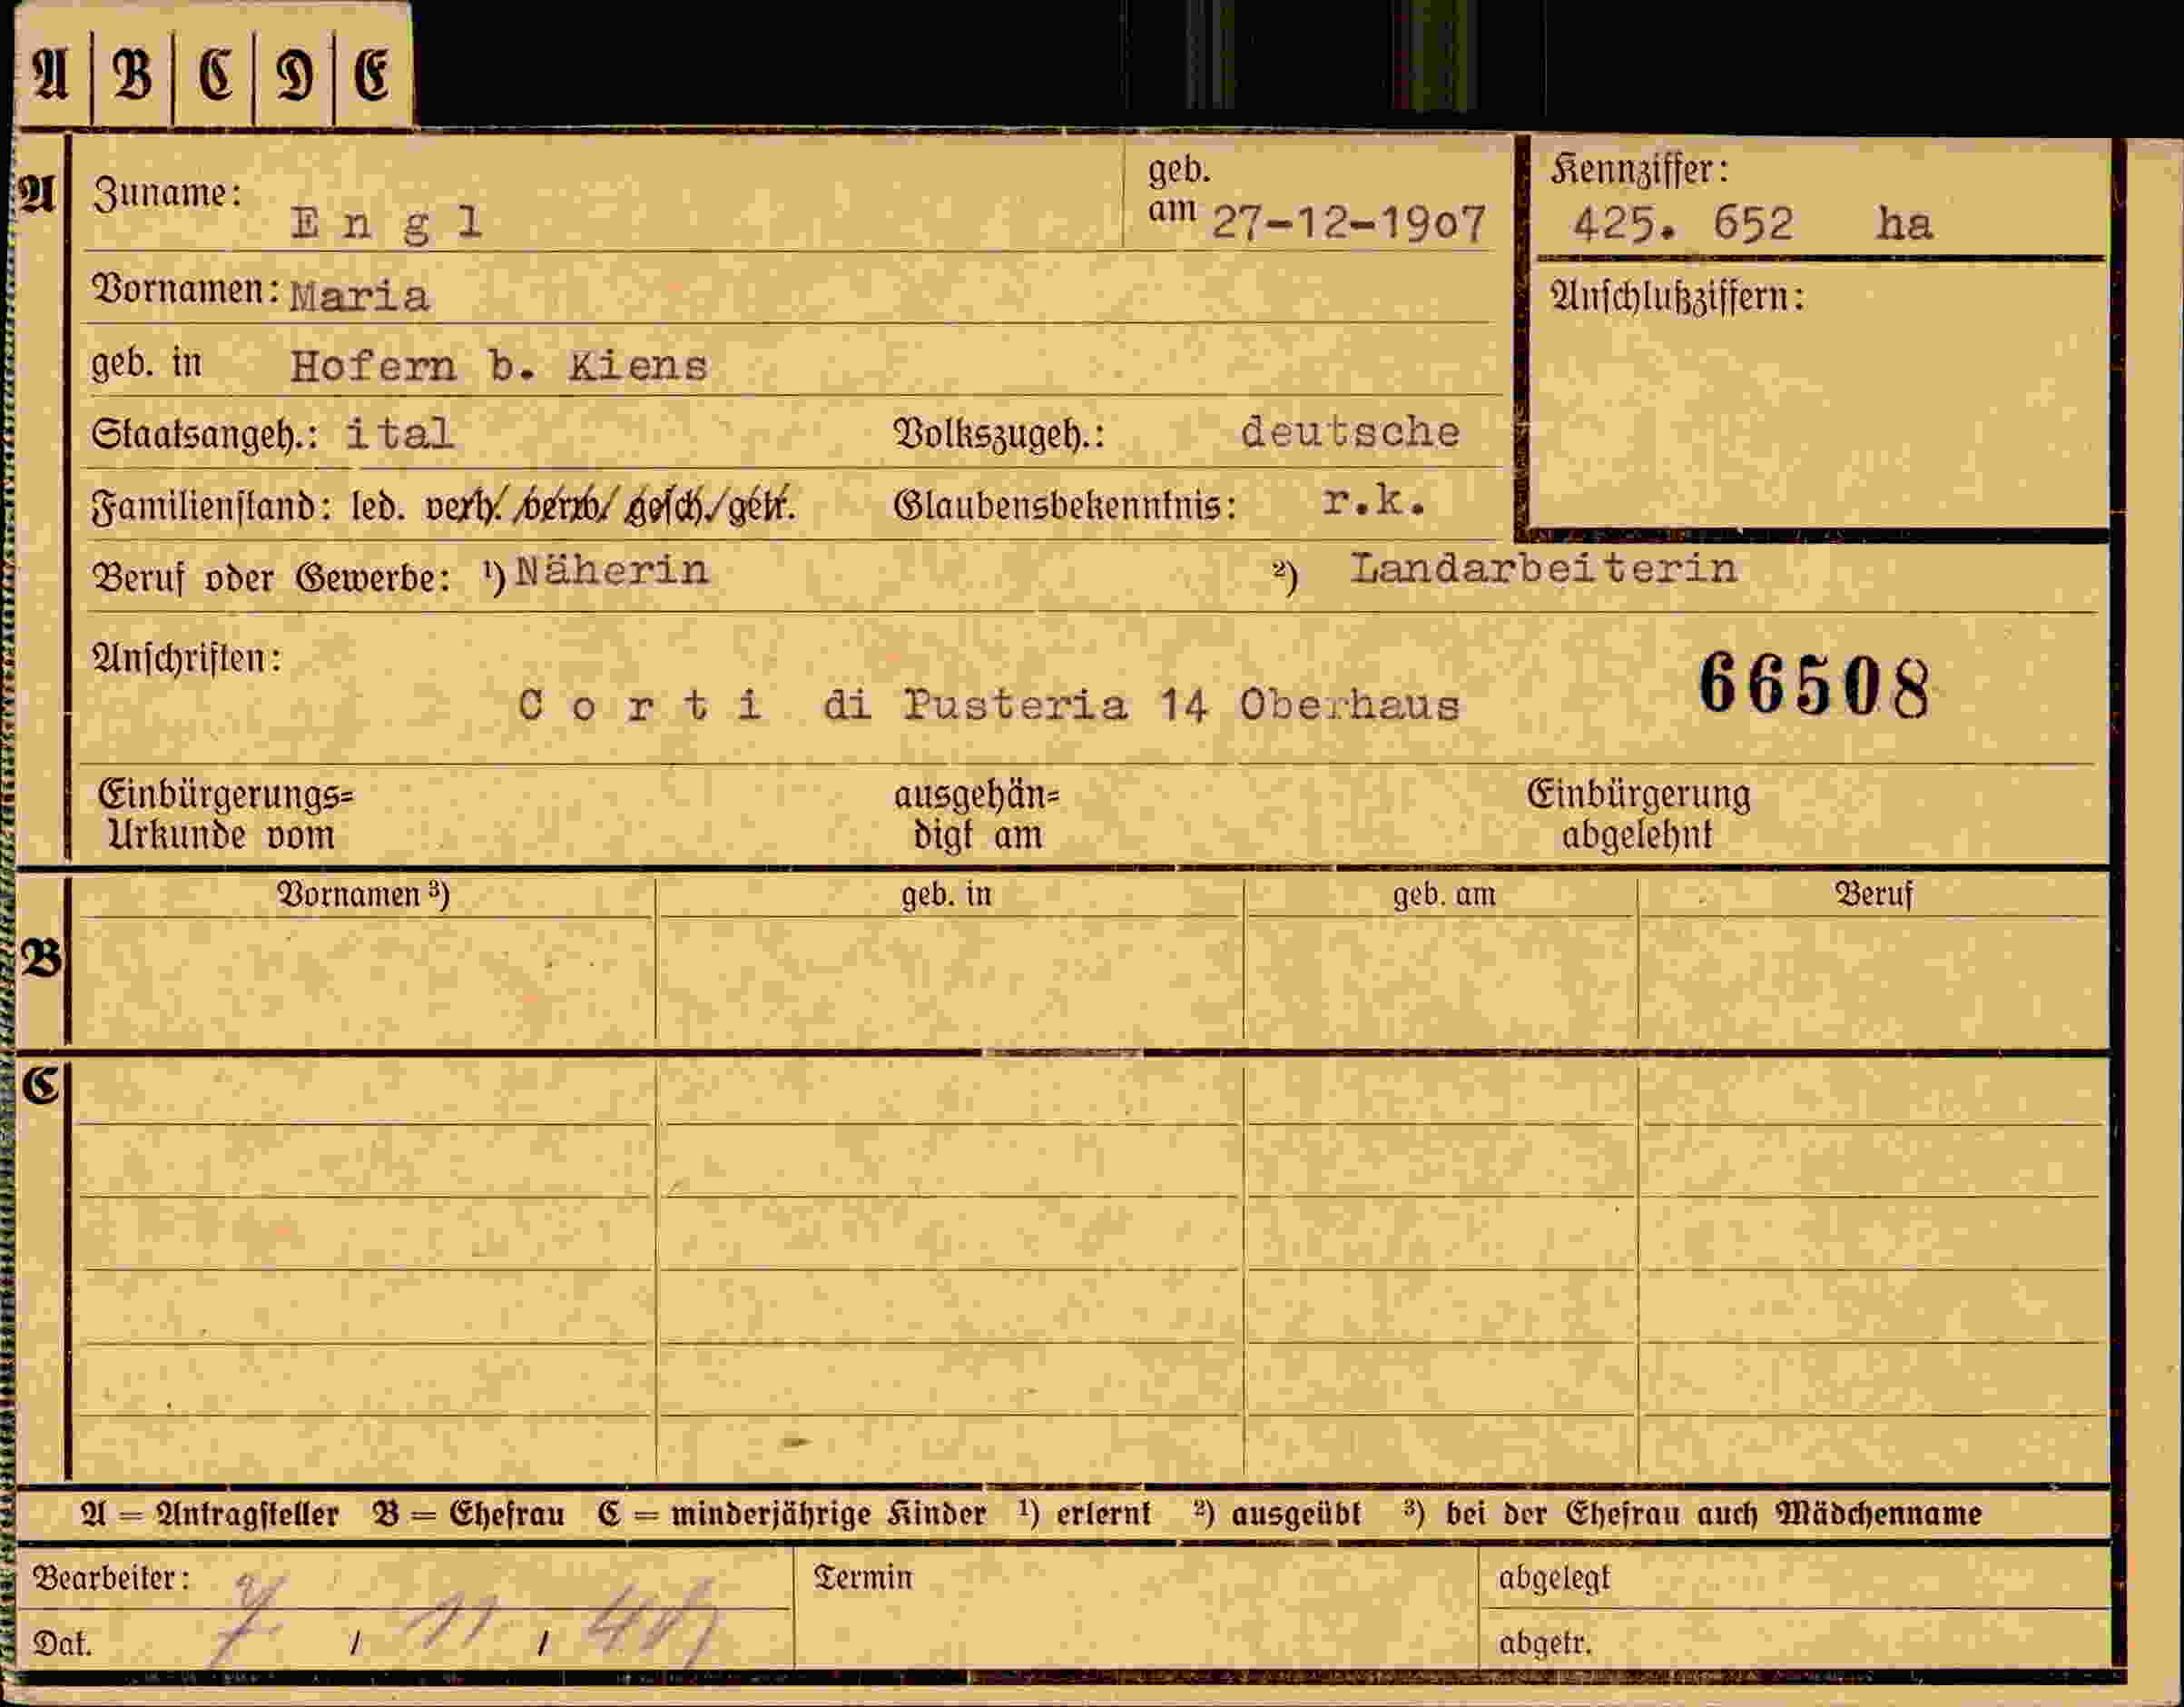 A B C D E
A Zuname: E n g l geb. am 27-12-1907 Kennziffer: 425. 652 ha
Vornamen: Maria Anschlußziffern:
geb. in Hofern b. Kiens
Staatsangeh.: ital Volkszugeh.: deutsche
Familienstand: led. verh. verw. gesch. getr. Glaubensbekenntnis: r.k.
Beruf oder Gewerbe: ¹) Näherin ²) Landarbeiterin
Anschriften: 66508
C o r t i di Pusteria 14 Oberhaus
Einbürgerungs= ausgehän= Einbürgerung
Urkunde vom digt am abgelehnt
Vornamen ³) geb. in geb. am Beruf
B
C
A = Antragsteller B = Ehefrau C = minderjährige Kinder ¹) erlernt ²) ausgeübt ³) bei der Ehefrau auch Mädchenname
Bearbeiter: Termin abgelegt
Dat. / 11 / abgetr.